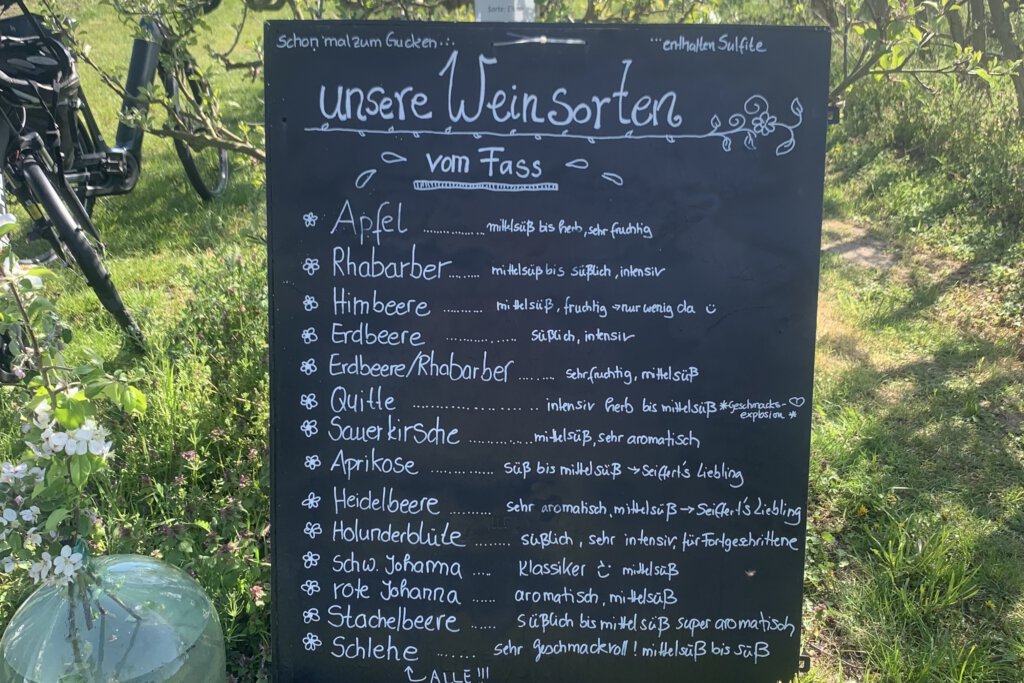 Sorte: El
schon mal zum Gucken...
...enthalten Sulfite
unsere Weinsorten
vom Fass
Apfel .............. mittelsüß bis herb, sehr fruchtig
Rhabarber ........ mittelsüß bis süßlich, intensiv
Himbeere .......... mittelsüß, fruchtig → nur wenig da ☺
Erdbeere .............. süßlich, intensiv
Erdbeere/Rhabarber ........ sehr fruchtig, mittelsüß
Quitte .................... intensiv herb bis mittelsüß *Geschmacks-♡
explosion *
Sauerkirsche ............ mittelsüß, sehr aromatisch
Aprikose ............. süß bis mittelsüß → Seiffert's Liebling
Heidelbeere ......... sehr aromatisch, mittelsüß → Seiffert's Liebling
Holunderblüte ....... süßlich, sehr intensiv, für Fortgeschrittene
Schw. Johanna .... Klassiker ☺ mittelsüß
rote Johanna ...... aromatisch, mittelsüß
Stachelbeere ...... süßlich bis mittelsüß super aromatisch
Schlehe ....... sehr geschmackvoll! mittelsüß bis süß
ALLE!!!